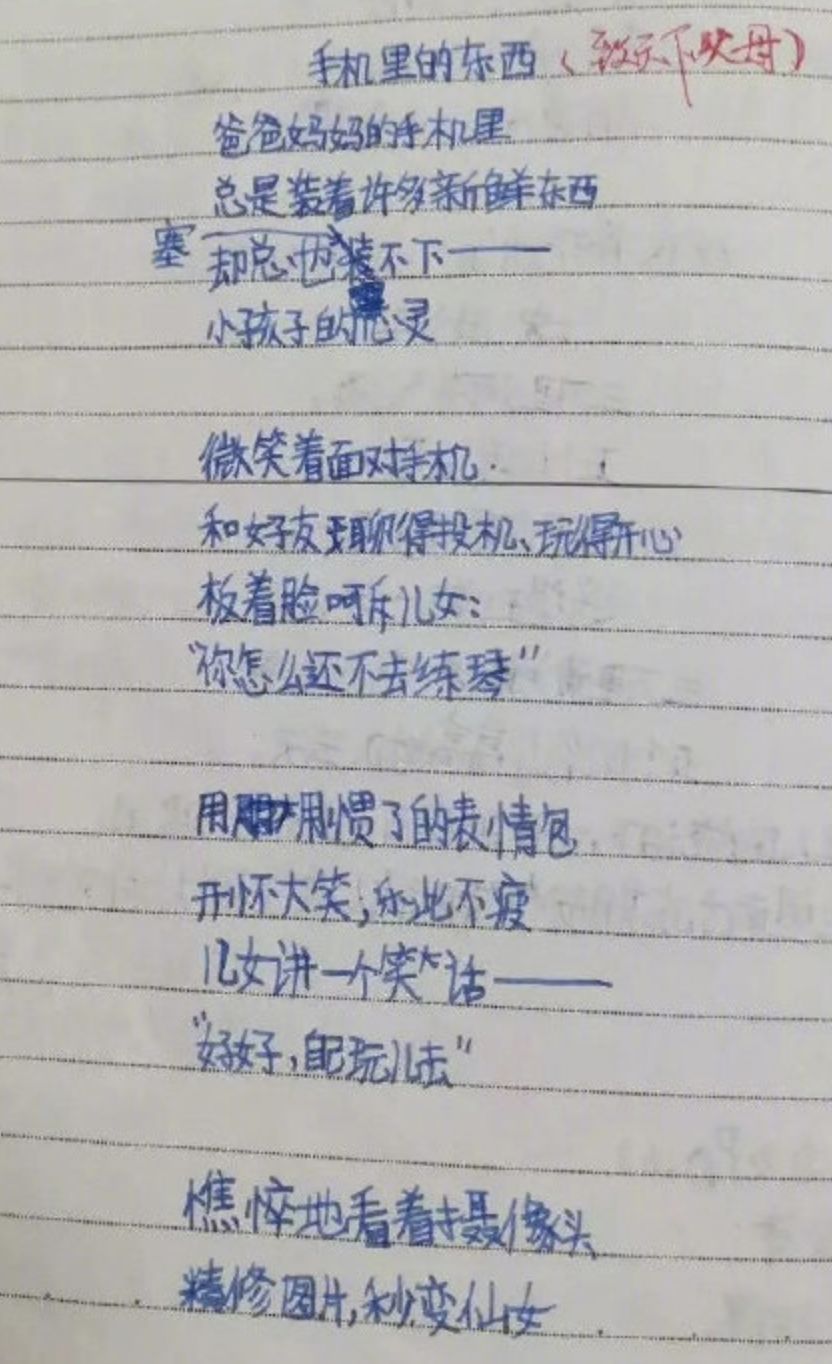 手机里的东西(致天下父母)
爸爸妈妈的手机里
总是装着许多新鲜东西
塞
却总也装不下——
小孩子的心灵
微笑着面对手机
和好友聊得投机、玩得开心
板着脸呵斥儿女:
“你怎么还不去练琴”
用用惯了的表情包
开怀大笑,乐此不疲
儿女讲一个笑话——
“好好好,自己玩儿去”
憔悴地看着摄像头
精修图片,秒变仙女